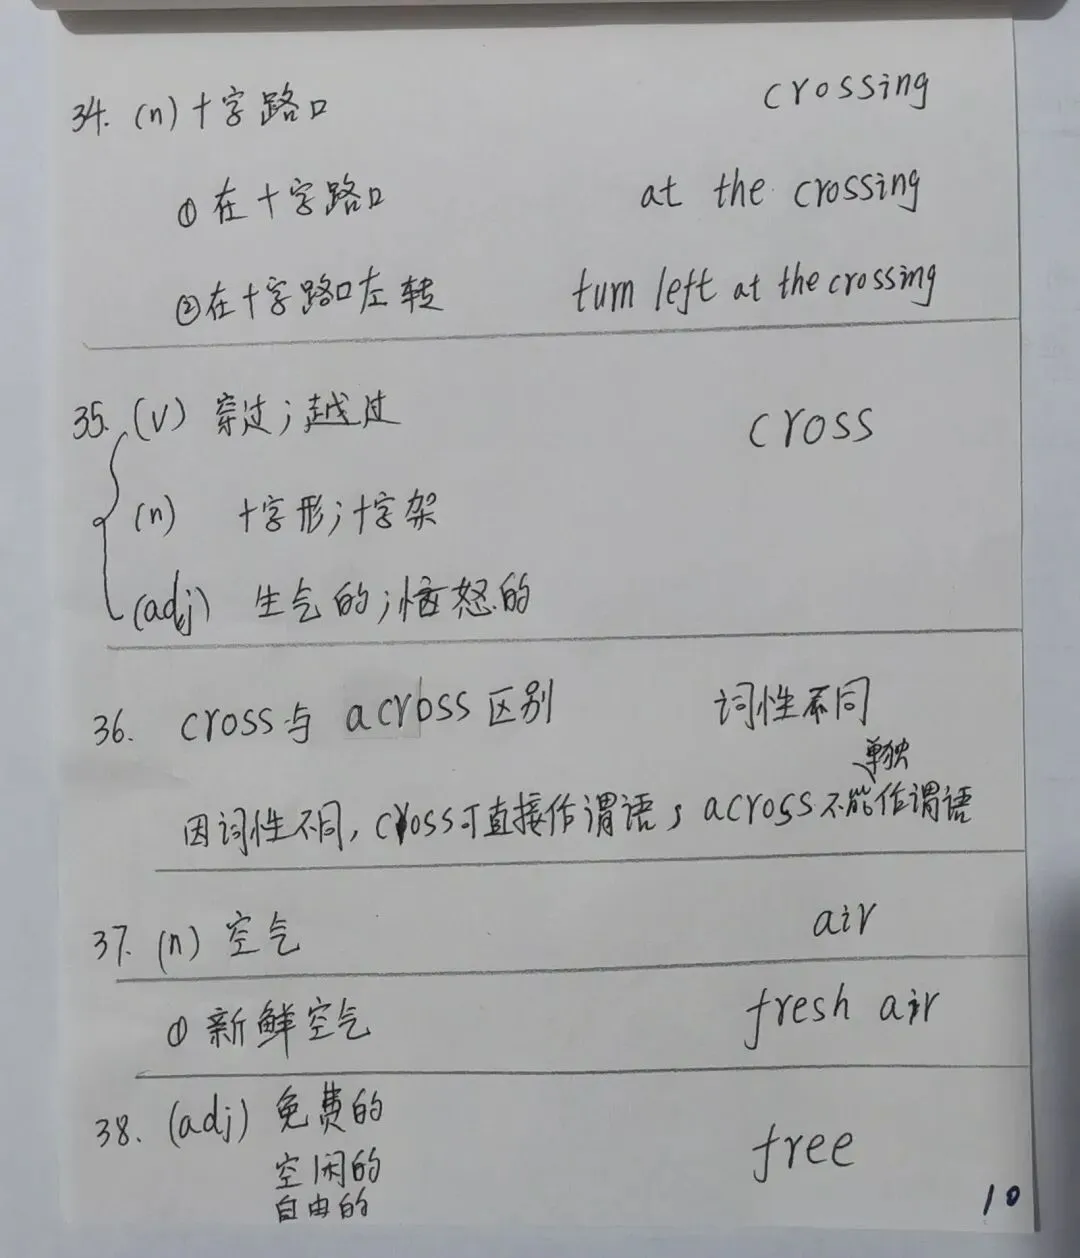 34. (n) 十字路口 crossing
① 在十字路口 at the crossing
② 在十字路口左转 turn left at the crossing
35. (V) 穿过；越过 cross
(n) 十字形；十字架
(adj) 生气的；恼怒的
36. cross与 across 区别 词性不同
单独
因词性不同，cross可直接作谓语；across不能作谓语
37. (n) 空气 air
① 新鲜空气 fresh air
38. (adj) 免费的 free
空闲的
自由的
10